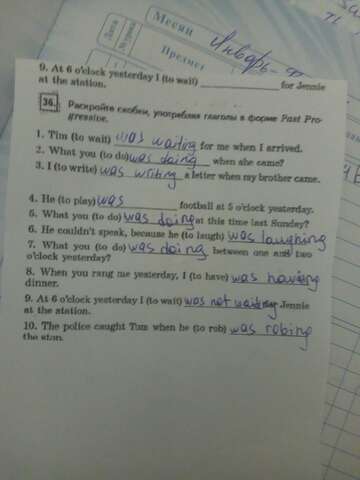 Месяц
Дата
Предмет
Январь-
9. At 6 o'clock yesterday I (to wait) ____________ for Jennie
at the station.
36. Раскройте скобки, употребляя глаголы в форме Past Pro-
gressive.
1. Tim (to wait) was waiting for me when I arrived.
2. What you (to do) was doing when she came?
3. I (to write) was writing a letter when my brother came.
4. He (to play) was ____________ football at 5 o'clock yesterday.
5. What you (to do) was doing at this time last Sunday?
6. He couldn't speak, because he (to laugh) was laughing
7. What you (to do) was doing between one and two
o'clock yesterday?
8. When you rang me yesterday, I (to have) was having
dinner.
9. At 6 o'clock yesterday I (to wait) was not waiting for Jennie
at the station.
10. The police caught Tom when he (to rob) was robing
the